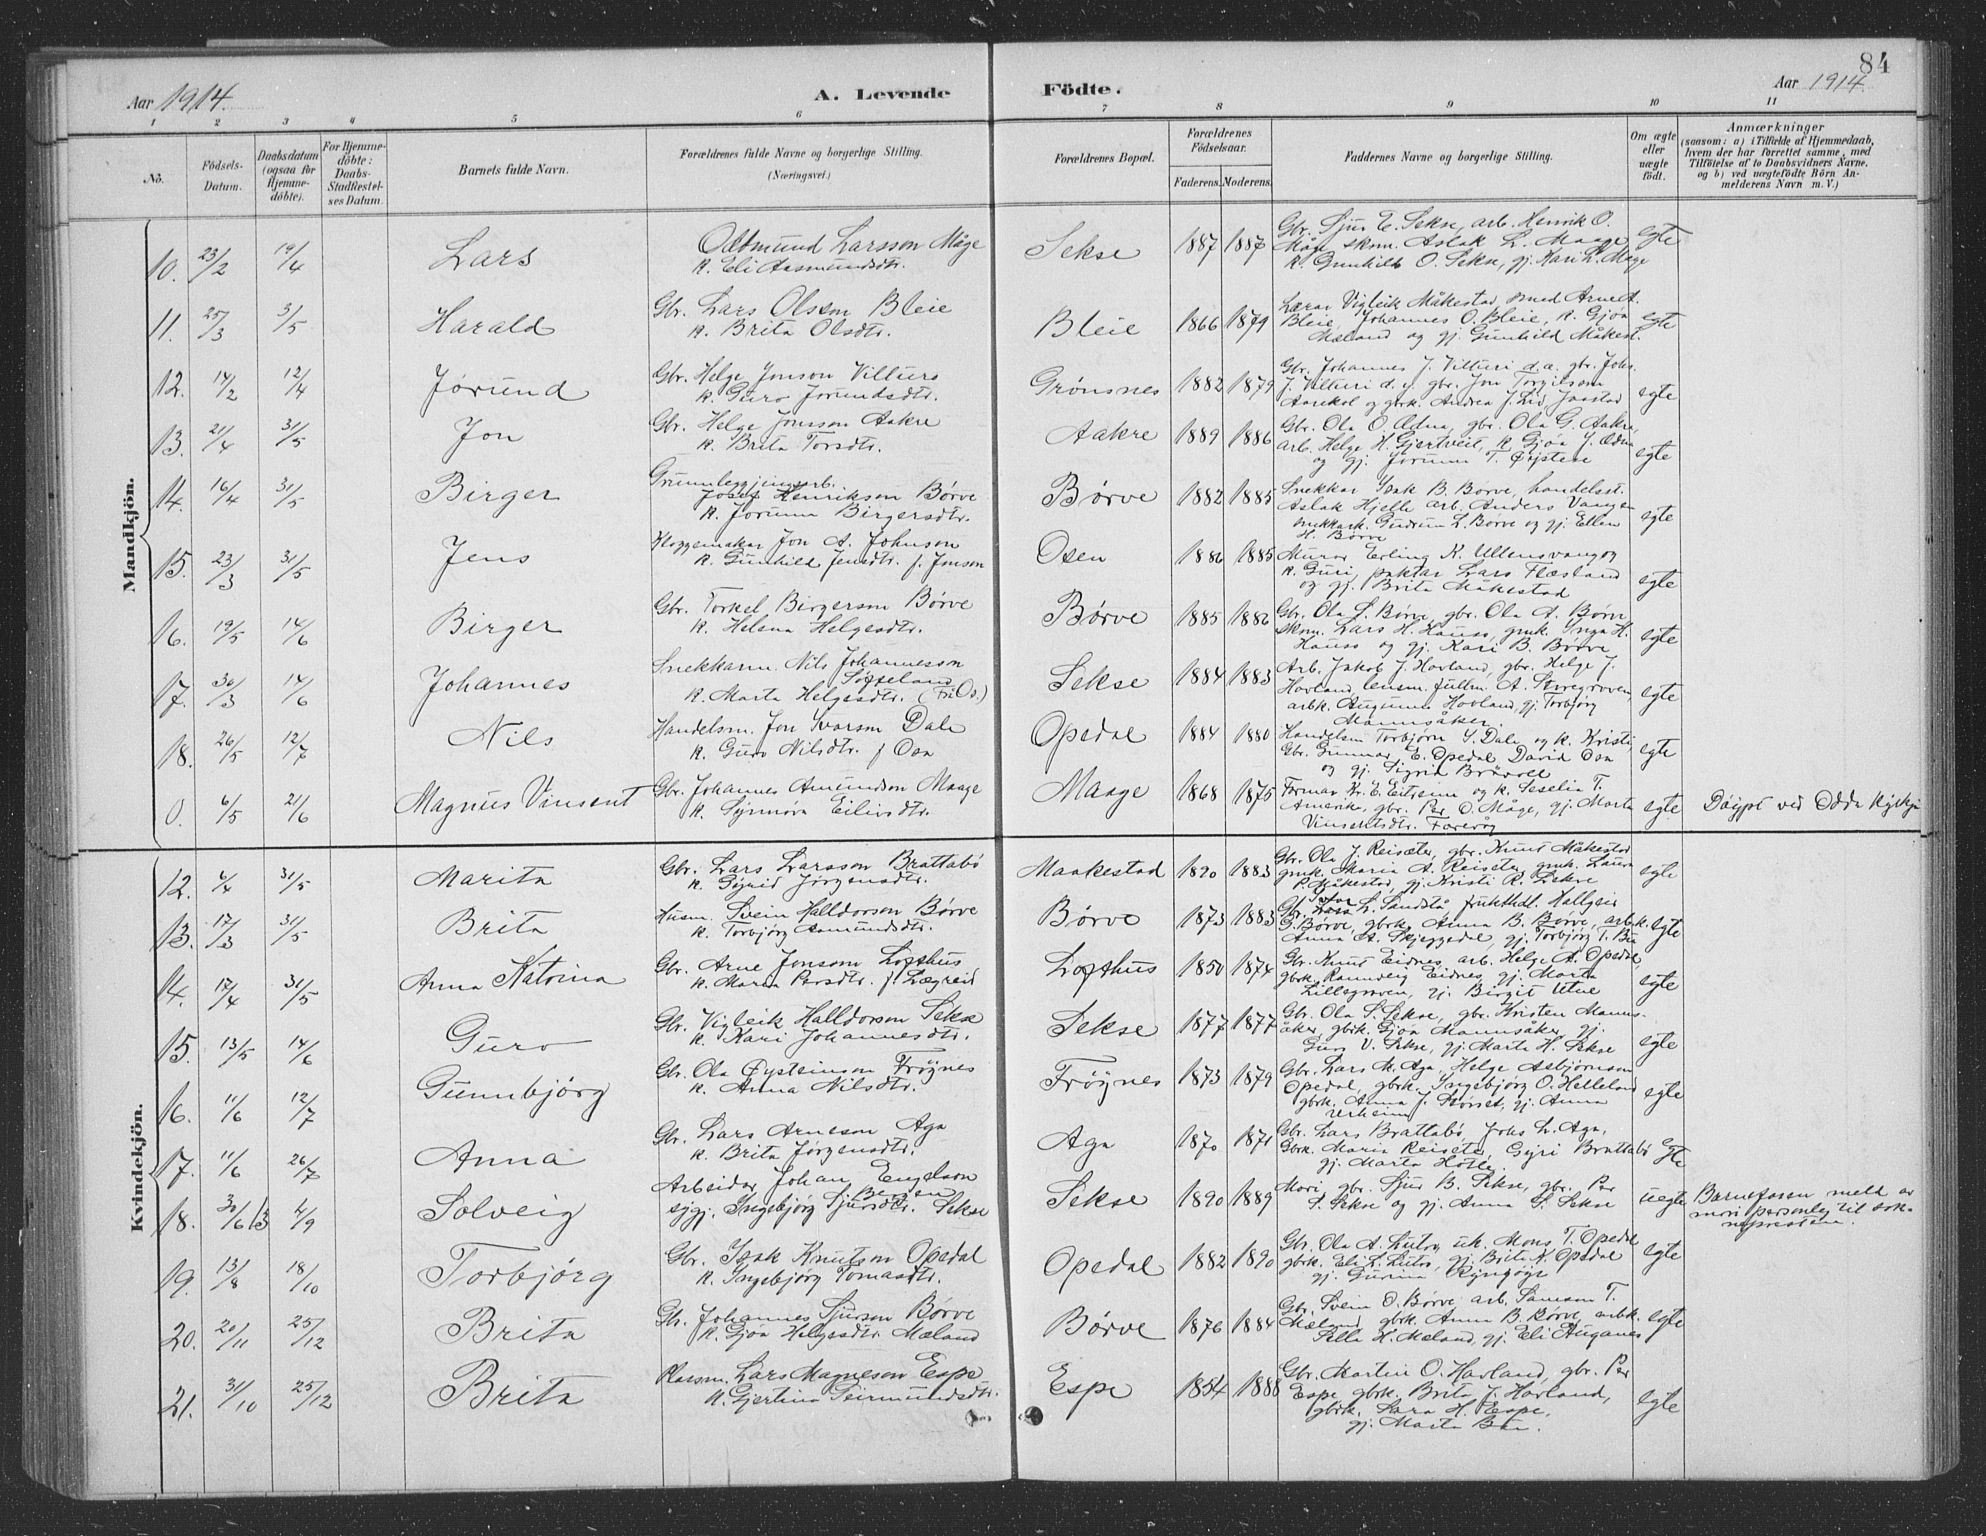 84
Aar 1914.
A. Levende
Födte.
Aar 1914.
1 2 3 4 5 6 7 8 9 10 11
No.
Födsels-
Datum.
Daabsdatum
(ogsaa for
Hjemme-
döbte).
For Hjemme-
döbte:
Daabs-
Stadfæstel-
ses Datum.
Barnets fulde Navn.
Forældrenes fulde Navne og borgerlige Stilling.
(Næringsvei.)
Forældrenes Bopæl.
Forældrenes
Födselsaar.
Faderens. Moderens.
Faddernes Navne og borgerlige Stilling.
Om ægte
eller
uægte
födt.
Anmærkninger
(saasom: a) i Tilfælde af Hjemmedaab,
hvem der har forrettet samme, med
Tilföielse af to Daabsvidners Navne,
og b) ved uægtefödte Börn An-
melderens Navn m. V.)
Mandkjön.
10. 23/2 19/4 Lars
Aasmund Larsson Måge
k. Eli Aasmundsdtr.
Sekse 1887 1887
Gbr. Sjur E. Sekse, arb. Henrik O.
Måge skom. Aslak L. Maage
k. Gunhild O. Sekse, gj. Kari L. Mage
egte
11. 25/3 3/5 Harald
Gbr. Lars Olsson Bleie
k. Brita Olsdtr.
Bleie 1866 1879
Lærar Vigleik Måkestad, smed Arne A.
Bleie, Johannes O. Bleie, k. Gjøa
Mæland og gj. Gunhild Måkest.
egte
12. 14/2 12/4 Jørund
Gbr. Helge Jonson Vilture
k. Guro Jorundsdtr.
Grønsnes 1882 1879
Gbr. Johannes J. Vilturi d.e. gbr. Johs.
J. Vilturi d.y. gbr. Jon Torgilson
Aarekol og gbrk. Andrea J. Lid Jaastad
egte
13. 21/4 31/5 Jon
Gbr. Helge Jonsson Aakre
k. Brita Torsdtr.
Aakre 1889 1886
Gbr. Ola O. Ædna, gbr. Ola G. Aakre,
arb. Helge H. Gjertveit, k. Gjøa J. Ædna
og gj. Jorunn T. Øystese
egte
14. 16/4 31/5 Birger
Grunnleggjingsarb.
Josef Henrikson Børve
k. Jorunn Birgersdtr.
Børve 1882 1885
Snekkar Isak B. Børve, handelsst.
Aslak Hjelle arb. Anders Vangen
snekkark. Gudrun L. Børve og gj. Ellen
H. Børve
egte
15. 23/3 31/5 Jens
Kloggemakar Jon A. Johnson
k. Gunhild Jensdtr. f. Jonson
Osen 1886 1885
Murar Erling K. Ullensvang og
k. Guri, paktar Lars Flæsland
og gj. Brita Måkestad
egte
16. 19/5 14/6 Birger
Gbr. Torkel Birgerson Børve
k. Helena Helgesdtr.
Børve 1885 1886
Gbr. Ola S. Børve, gbr. Ola A. Børve
skom. Lars H. Hauso, gmk. Inga H.
Hauso og gj. Kari B. Børve
egte
17. 30/3 14/6 Johannes
Snekkarm. Nils Johannesson
Søfteland
k. Marta Helgesdtr. (Frå Os.)
Sekse 1884 1883
Arb. Jakob J. Hovland, gbr. Helge J.
Hovland, lensm. fullm. A. Storegroven,
arbk. Augunna Hovland, gj. Torbjørg
Mannsåker.
egte
18. 26/5 12/7 Nils
Handelsm. Jon Ivarson Dale
k. Guro Nilsdtr. f. Oda
Opedal 1884 1880
Handelsm Torbjørn I. Dale og k. Kristi,
Gbr. Gunnar E. Opedal David Oda
og gj. Sigrid Bråvoll
egte
0. 6/5 21/6 Magnus Vinsent
Gbr. Johannes Amundson Maage
k. Synnøva Eilivsdtr.
Maage 1868 1875
Formar Kr. E. Eitrheim og k. Seselia T.
Amerika, gbr. Per O. Måge, gj. Marta
Vinsentsdtr. Færøy
egte
Døypt ved Odda kyrkja
Kvindekjön.
12. 6/4 31/5 Marita
Gbr. Lars Larsson Brattabø
k. Gyrid Jørgensdtr.
Maakestad 1890 1883
Gbr. Ola J. Reisæter, gbr. Knut Måkestad
gmk. Maria A. Reisæter, gmk. Laura
P. Måkestad, gj. Kristi R. Sekse
egte
13. 17/3 31/5 Brita
Husm. Svein Halldorson Børve
k. Torbjørg Aamundsdtr.
Børve 1873 1883
Gbr. L. Sandstå frukthdl. Hallgeir
G. Børve, gbrk. Anna B. Børve, arbk.
Anna A. Skjeggedal, gj. Torbjørg T. Bu
egte
14. 17/4 31/5 Anna Katrina
Gbr. Arne Jonsson Lofthus
k. Maria Persdtr. f. Lægreid
Lofthus 1850 1874
Gbr. Knut Eidnes, arb. Helge A. Opedal,
gbrk. Rannveig Eidnes, gj. Marta
Lillegraven, gj. Birgit Utne
egte
15. 13/5 14/6 Guro
Gbr. Vigleik Halldorson Sekse
k. Kari Johannesdtr.
Sekse 1877 1877
Gbr. Ola S. Sekse, gbr. Kristen Manns-
åker, gbrk. Gjøa Mannsåker, gj.
Guro V. Sekse, gj. Marta H. Sekse
egte
16. 11/6 12/7 Gunnbjørg
Gbr. Ola Øysteinson Frøynes
k. Anna Nilsdtr.
Frøynes 1873 1879
Gbr. Lars M. Aga, Helge Asbjørnson
Opedal, gbrk. Ingebjørg O. Helleland
gbrk. Anna J. Børset, gj. Anna
egte
17. 11/6 26/7 Anna
Gbr. Lars Arneson Aga
k. Brita Jørgensdtr.
Aga 1870 1871
Gbr. Lars Brattabø, Johs L. Aga,
Gbrk. Maria Reisæter, Gyri Brattabø
gj. Marta Hotle.
egte
18. 30/6 13 6/9 Solveig
Arbeidar Johan Engelson
Bergen
ugj. Ingebjørg Sjursdtr. Sekse
Sekse 1890 1889
Mori gbr. Sjur B. Sekse, gbr. Per
S. Sekse og gj. Anna S. Sekse
uegte
Barnefaren meld av
mori personleg til sok-
nepresten.
19. 13/8 18/10 Torbjørg
Gbr. Isak Knutson Opedal
k. Ingebjørg Tomasdtr.
Opedal 1882 1890
Gbr. Ola A. Lutro, uk. Mons T. Opedal
gbrk. Eli L. Lutro, gj. Brita K. Opedal
gj. Gurina Ryngøyr
egte
20. 20/11 25/12 Brita
Gbr. Johannes Sjurson Børve
k. Gjøa Helgesdtr. Mæland
Børve 1876 1884
Gbr. Svein O. Børve, arb. Samson T.
Mæland, gbrk. Anna B. Børve, arbk.
Pella H. Mæland, gj. Eli Auganes
egte
21. 31/10 25/12 Brita
Plassm. Lars Magneson Espe
k. Gjertina Geirmundsdtr.
Espe 1854 1888
Gbr. Martin O. Hovland, gbr. Per
Espe gbrk. Brita J. Hovland,
gbrk. Sara H. Espe,
gj. Marta Bu.
egte